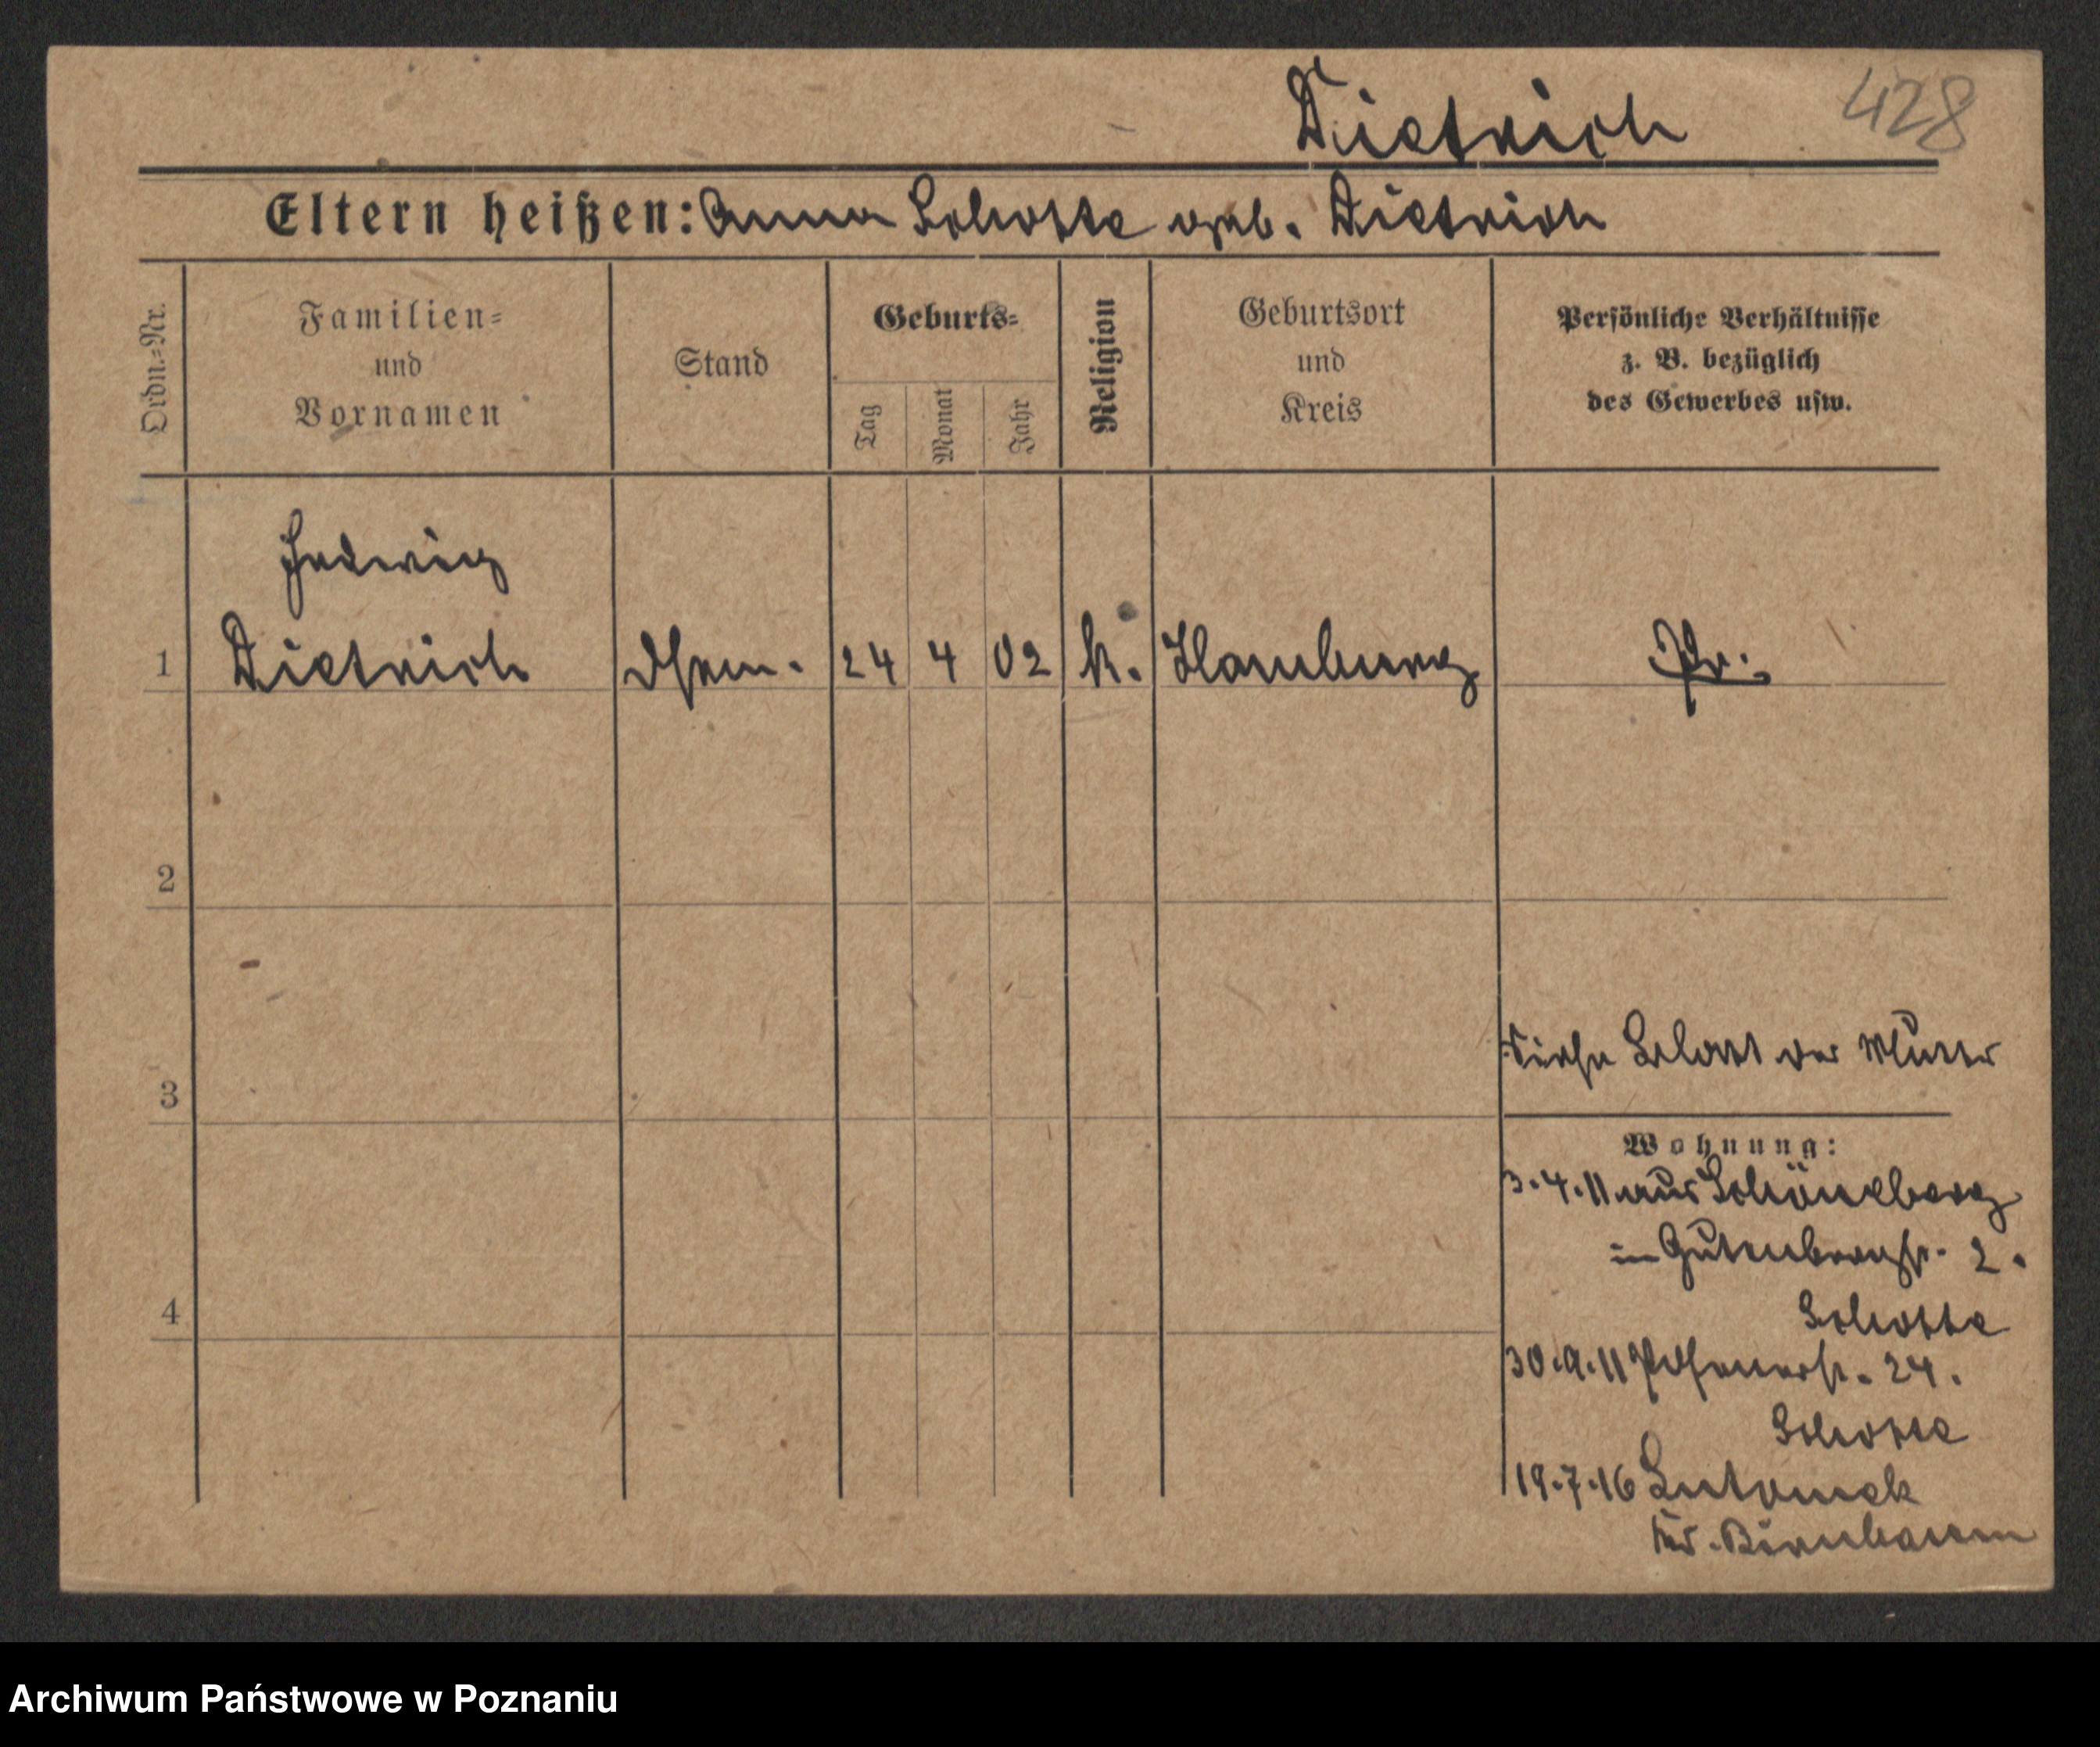 Dietrich 428
Eltern heißen: Anna Schotte geb. Dietrich
Ordn.=Nr.
Familien=
und
Vornamen
Stand
Geburts=
Tag
Monat
Jahr
Religion
Geburtsort
und
Kreis
Persönliche Verhältnisse
z. B. bezüglich
des Gewerbes usw.
Hedwig
1 Dietrich 24 4 02 k. Hamburg Pr.
2
Siehe Blatt der Mutter
3
Wohnung:
3.4.11 aus Schöneberg
in Gutenbergstr. 2.
Schotte
4
30.9.11 Posenerstr. 24.
Schotte
19.7.16 Lutomek
Kr. Birnbaum
Archiwum Państwowe w Poznaniu